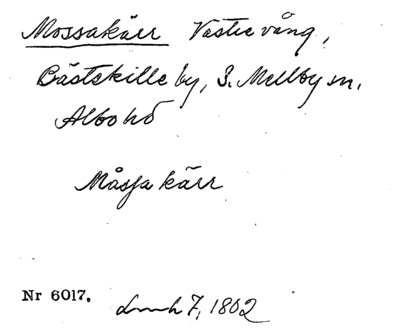 Mossakärr Västervång,
Bästekille by, S. Mellby sn.
Albo hd
Måssa kärr
Nr 6017. 7, 1802